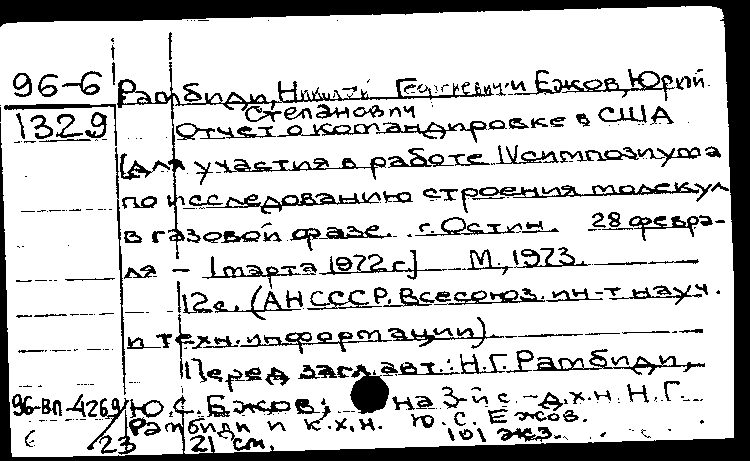 96-6 Рамбиди, Николай Георгиевич и Ежов, Юрий
Степанович
1329 Отчет о командировке в США
[для участия в работе IV симпозиума
по исследованию строения молекул
в газовой фазе. г. Остин. 28 февра-
ля - 1 марта 1972 г.] М., 1973.
12 с. (АН СССР. Всесоюз. ин-т науч.
и техн. информации).
Перед загл. авт.: Н.Г. Рамбиди,
96-ВП-4269/ Ю.С. Ежов; на 3-й с. - д.х.н. Н.Г.
Рамбиди и к.х.н. Ю.С. Ежов.
6 /23 21 см. 101 экз.